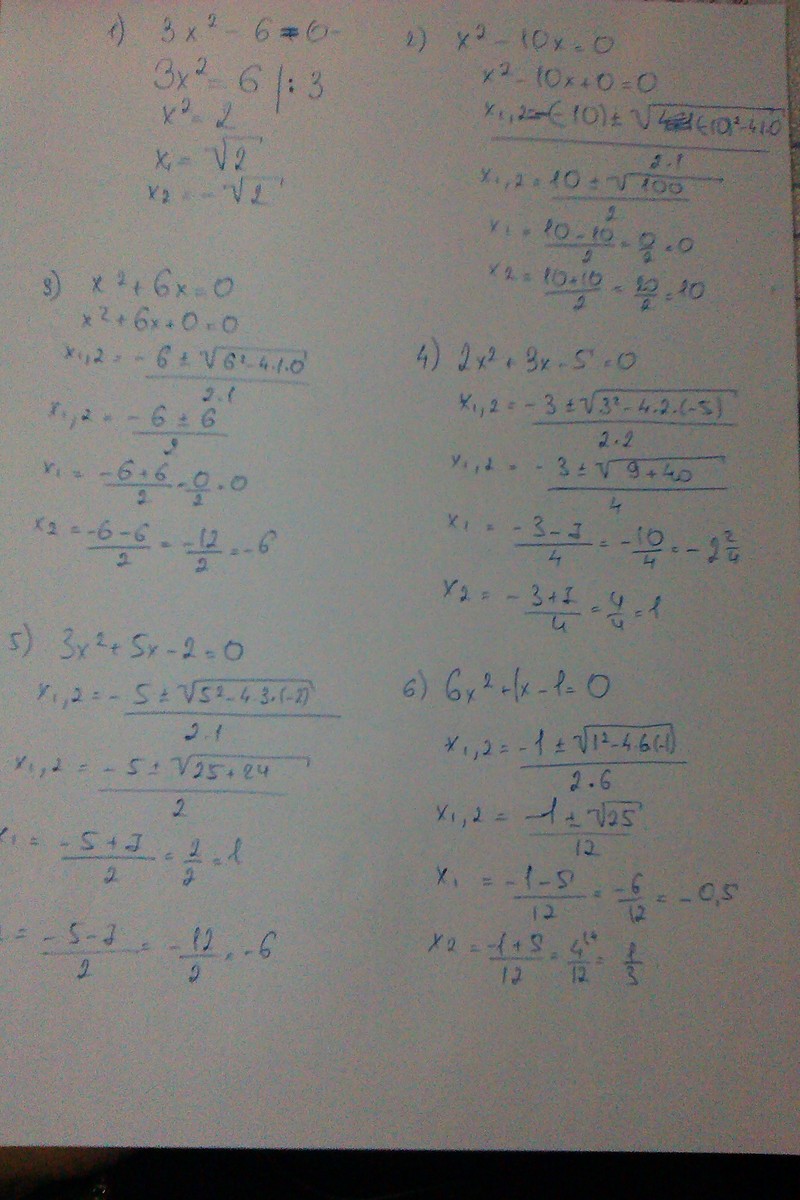 1) 3x² - 6 = 0
3x² = 6 | : 3
x² = 2
x₁ = √2
x₂ = - √2
2) x² - 10x = 0
x² - 10x + 0 = 0
x₁,₂ = -(-10) ± √(-10)² - 4·1·0
2·1
x₁,₂ = 10 ± √100
2
x₁ = 10 - 10 / 2 = 0/2 = 0
x₂ = 10 + 10 / 2 = 20/2 = 10
3) x² + 6x = 0
x² + 6x + 0 = 0
x₁,₂ = - 6 ± √6² - 4·1·0
2·1
x₁,₂ = - 6 ± 6
2
x₁ = -6 + 6 / 2 = 0/2 = 0
x₂ = -6 - 6 / 2 = -12/2 = -6
4) 2x² + 3x - 5 = 0
x₁,₂ = - 3 ± √3² - 4·2·(-5)
2·2
x₁,₂ = - 3 ± √9 + 40
4
x₁ = -3 - 7 / 4 = -10/4 = -2 2/4
x₂ = -3 + 7 / 4 = 4/4 = 1
5) 3x² + 5x - 2 = 0
x₁,₂ = - 5 ± √5² - 4·3·(-2)
2·1
x₁,₂ = - 5 ± √25 + 24
2
x₁ = -5 + 7 / 2 = 2/2 = 1
= -5 - 7 / 2 = -12/2 = -6
6) 6x² + 1x - 1 = 0
x₁,₂ = -1 ± √1² - 4·6(-1)
2·6
x₁,₂ = -1 ± √25
12
x₁ = -1 - 5 / 12 = -6/12 = -0,5
x₂ = -1 + 5 / 12 = 4/12 = 1/3